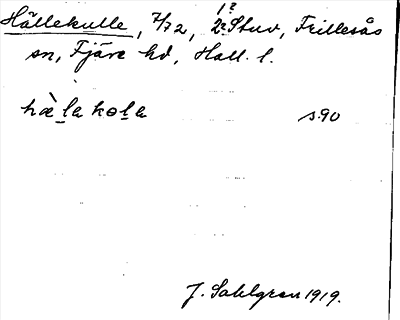 Hällekulle, 7/72, 2:Stuv, Frillesås
sn, Fjäre hd, Hall. l.
hæ̀la kola s.90
J. Sahlgren 1919.